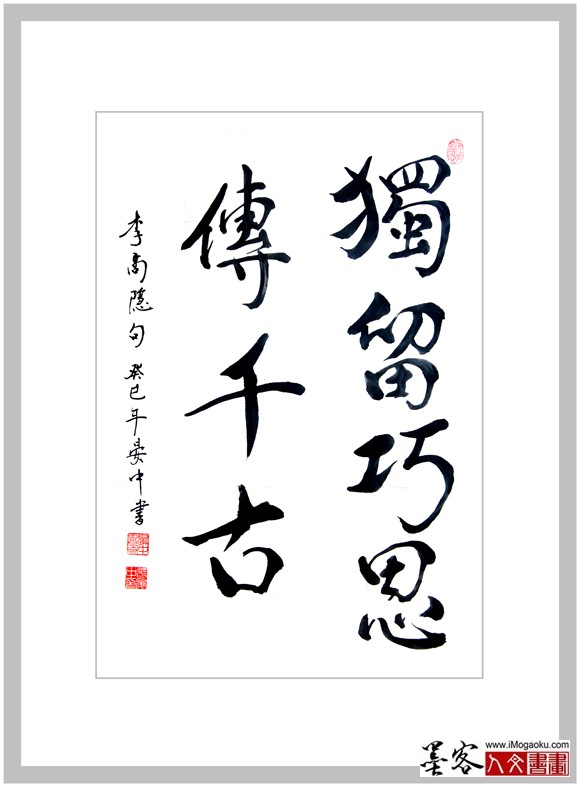 獨留巧思
傳千古
李商隱句 癸巳年晏中書
www.iMogaoku.com
墨客
人文書畫